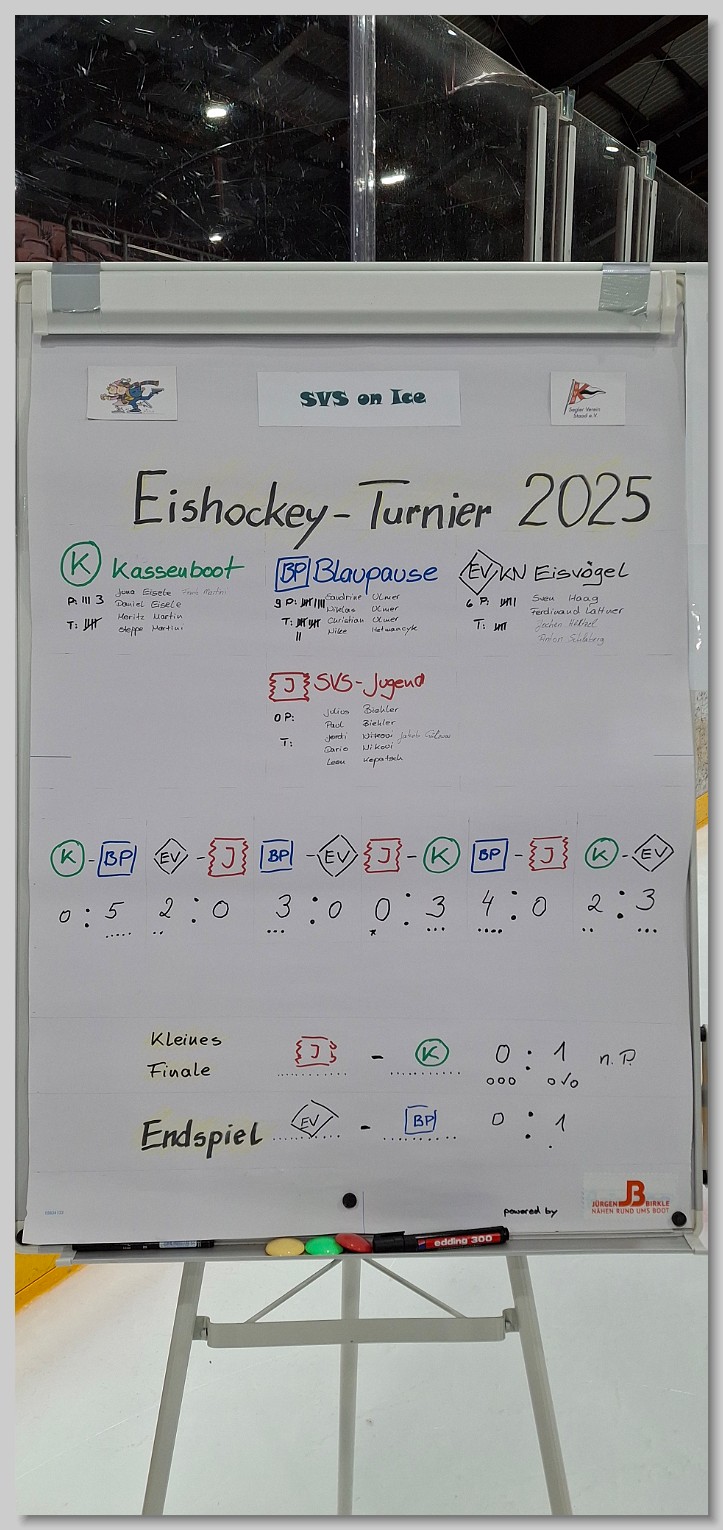 SVS on Ice
Segler Verein
Staad e.V.
Eishockey-Turnier 2025
K Kassenboot
P: III 3
T:
Jona Eisele
Daniel Eisele
Moritz Martin
Steppe Martin
BP Blaupause
9 P:
T:
Sandrine Ulmer
Niklas Ulmer
Christian Ulmer
Nike
EV KN Eisvögel
6 P:
T:
Sven Haag
Ferdinand Lattner
Jochen
Anton
J SVS-Jugend
0 P:
T:
Julius Biehler
Paul Biehler
Jordi Nikovi Jakob
Dario Nikovi
Leon Kopatsch
K - BP EV - J BP - EV J - K BP - J K - EV
0 : 5 2 : 0 3 : 0 0 : 3 4 : 0 2 : 3
Kleines
Finale
J - K 0 : 1 n.P.
Endspiel EV - BP 0 : 1
powered by
JB
JÜRGEN BIRKLE
NÄHEN RUND UMS BOOT
edding 300